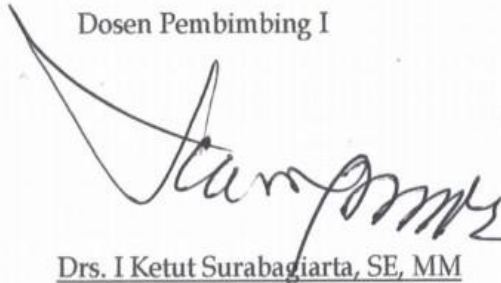 Dosen Pembimbing I
Drs. I Ketut Surabagiarta, SE, MM